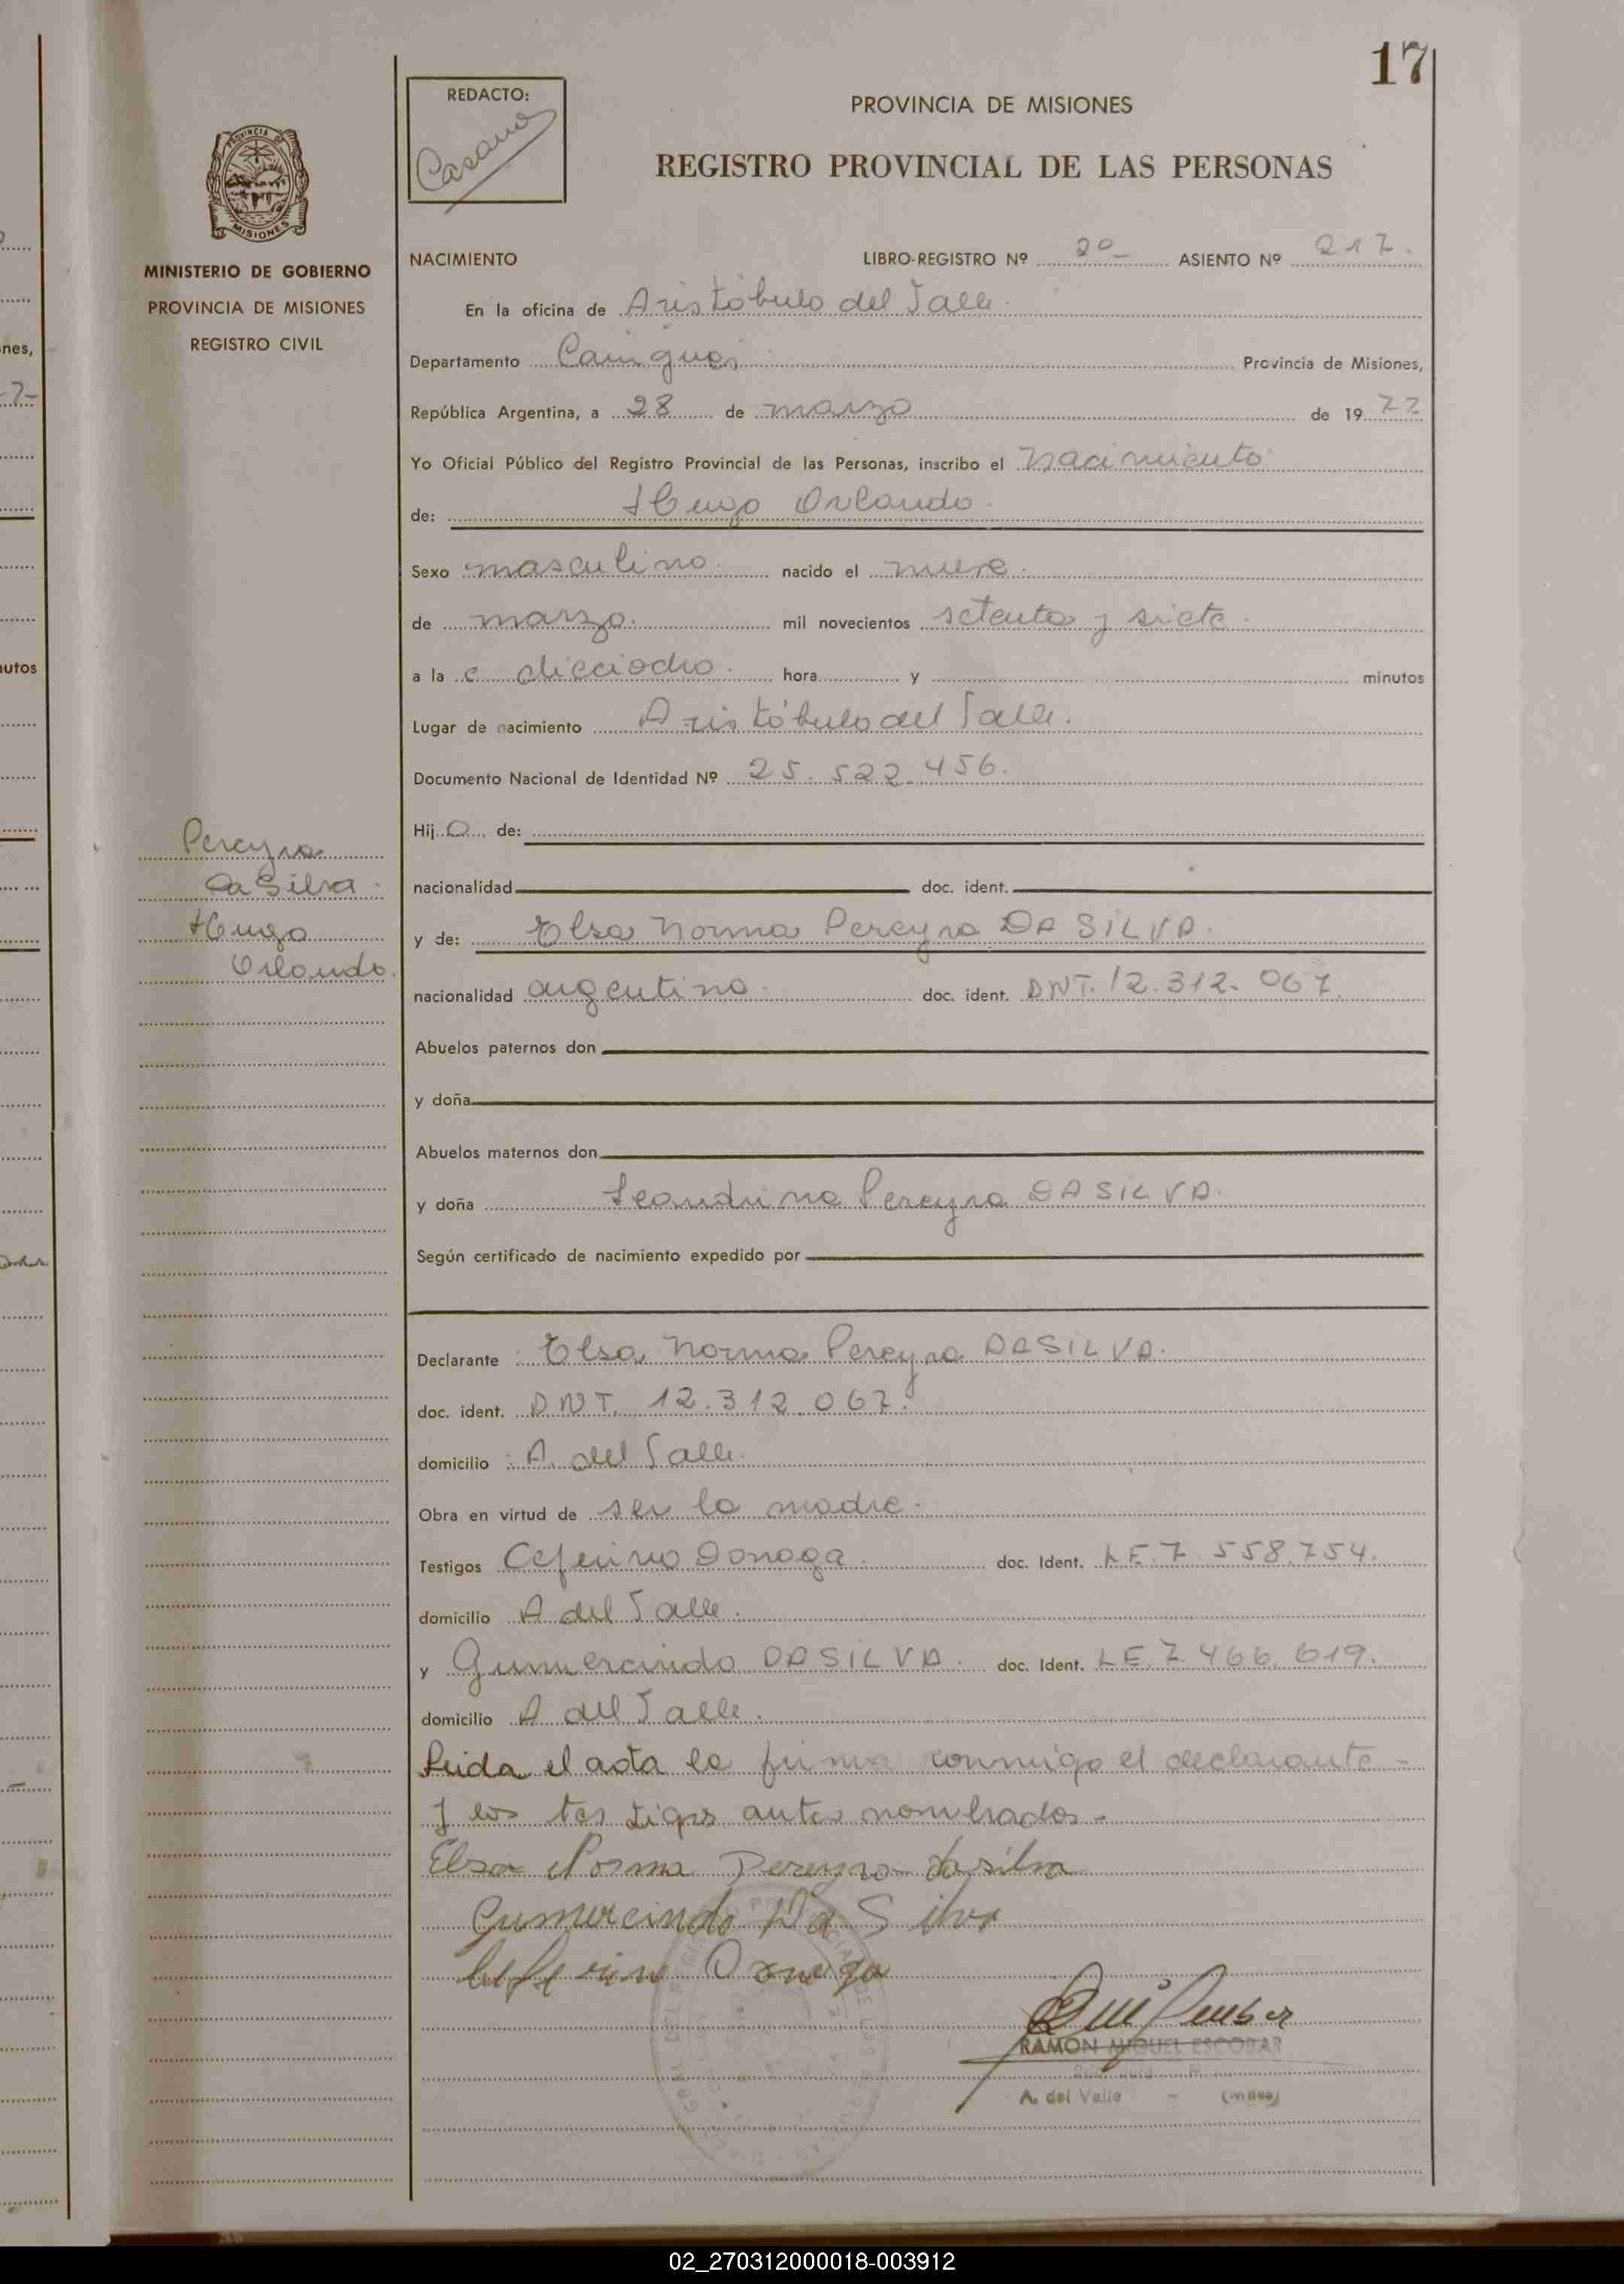 17
REDACTO:
PROVINCIA DE MISIONES
REGISTRO PROVINCIAL DE LAS PERSONAS
PROVINCIA DE
MISIONES
MINISTERIO DE GOBIERNO
PROVINCIA DE MISIONES
REGISTRO CIVIL
NACIMIENTO LIBRO-REGISTRO Nº 2º- ASIENTO Nº 217.
En la oficina de Aristóbulo del Valle.
Departamento Cainguás Provincia de Misiones,
República Argentina, a 28 de marzo de 1977
Yo Oficial Público del Registro Provincial de las Personas, inscribo el Nacimiento
de: Hugo Orlando.
Sexo masculino. nacido el nueve.
de marzo. mil novecientos setenta y siete.
a la s dieciocho. hora y minutos
Lugar de nacimiento Aristóbulo del Valle.
Documento Nacional de Identidad Nº 25.522.456.
Hij o de:
nacionalidad doc. ident.
Pereyra
Da Silva.
Hugo
Orlando.
y de: Elsa Norma Pereyra DA SILVA.
nacionalidad argentina. doc. ident. DNI. 12.312.067.
Abuelos paternos don
y doña
Abuelos maternos don
y doña Leandrina Pereyra DA SILVA.
Según certificado de nacimiento expedido por
Declarante Elsa Norma Pereyra DA SILVA.
doc. ident. DNI. 12.312.067.
domicilio A. del Valle.
Obra en virtud de ser la madre.
Testigos Ceferino doc. Ident. LE. 7.558.754.
domicilio A del Valle.
y Gumercindo DA SILVA. doc. Ident. LE. 7.466.619.
domicilio A del Valle.
Leida el acta la firma conmigo el declarante-
y los testigos antes nombrados-
Elsa Norma Pereyra dasilva
Gumercindo Da Silva
Ceferino
RAMON MIGUEL ESCOBAR
A. del Valle - (Mnes)
nes,
utos
02_270312000018-003912